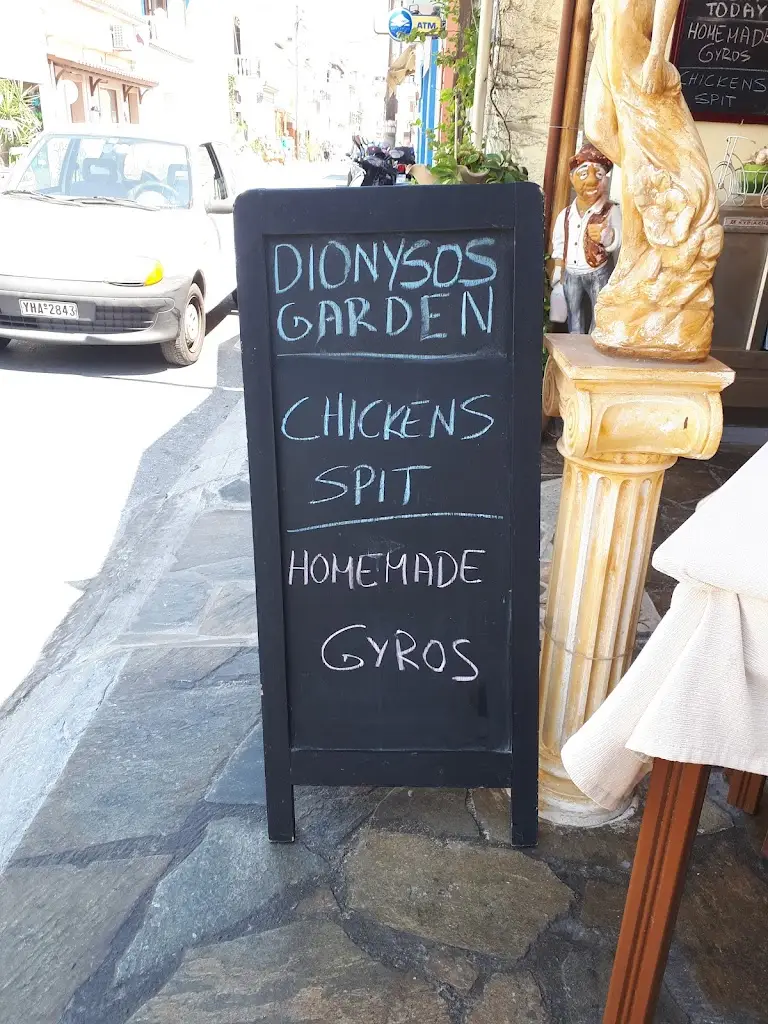 DIONYSOS
GARDEN
CHICKENS
SPIT
HOMEMADE
GYROS
ATM
TODAY
HOMEMADE
GYROS
CHICKENS
SPIT
YHA 2843